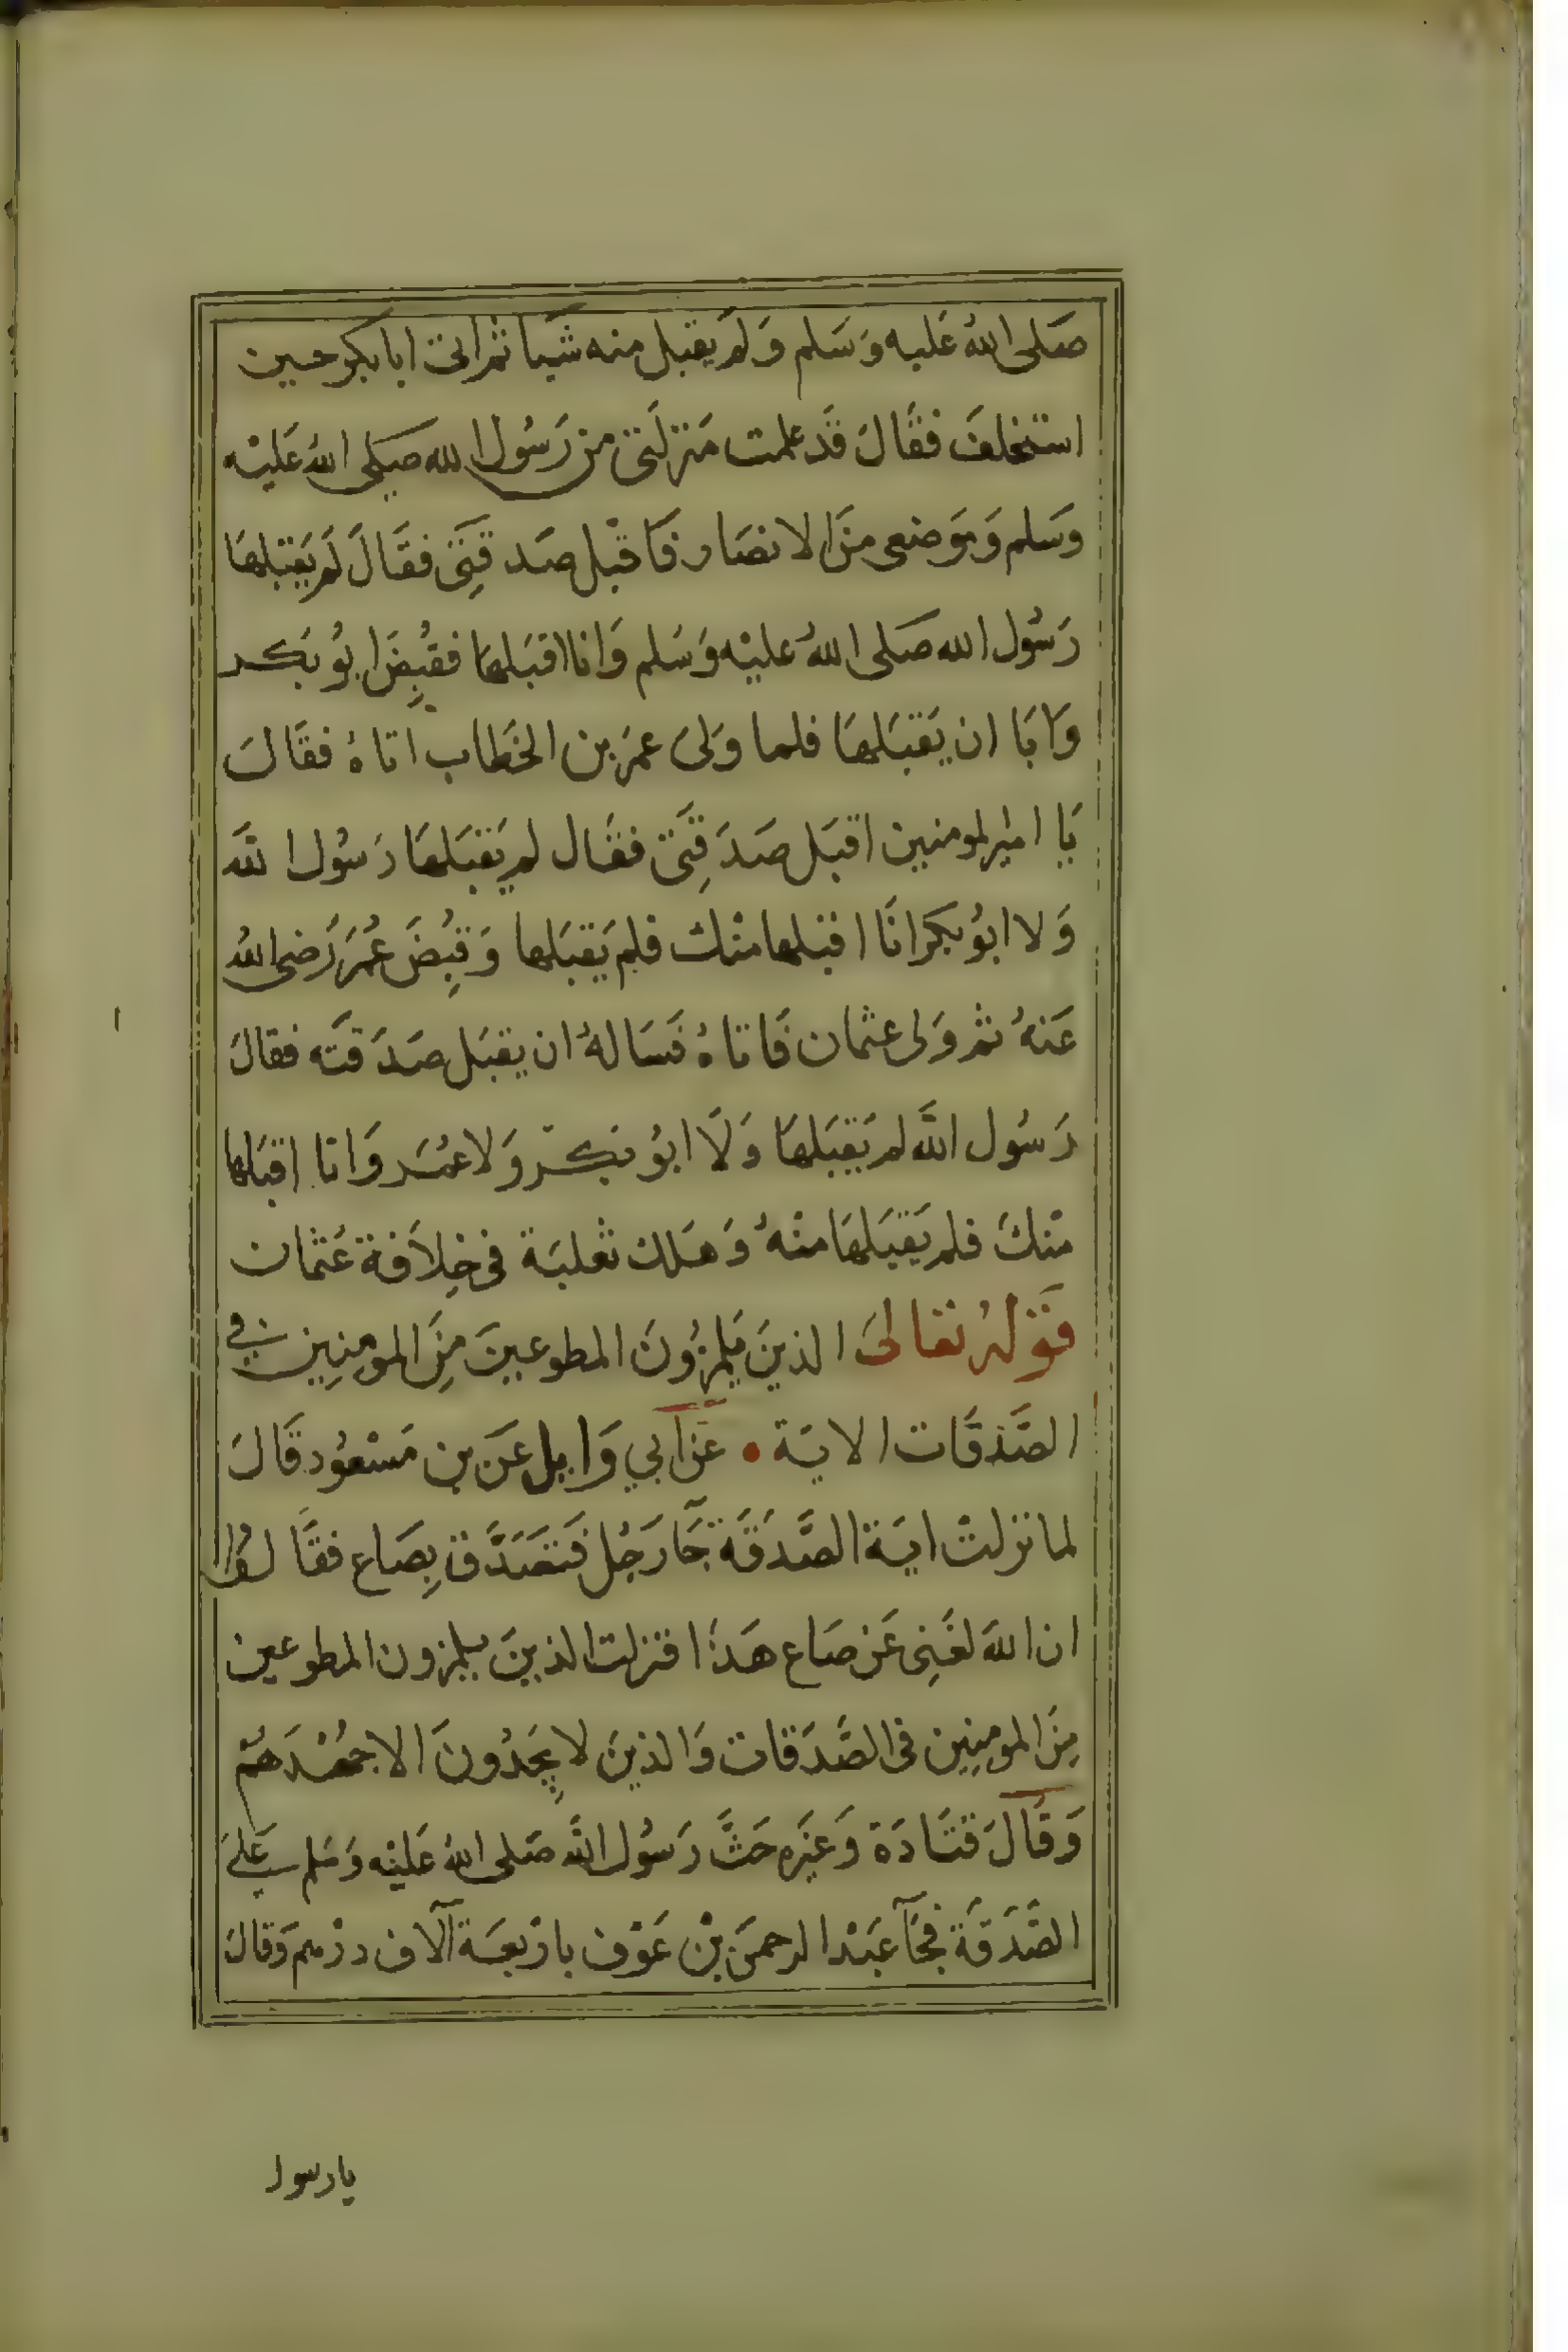 صَلى اللهُ عَليه وَسَلم وَلم يقبل منه شَيا ثمر اتى ابابكر حين
استخلفَ فقَالَ قَد علمت مَنزلَتى من رَسُول الله صَلى اللهُ عَليْه
وَسَلم وَموَضعى منَ الانصَار فَاقْبل صَدقَتِى فقَالَ لَم يَقبَلهَا
رَسُول الله صَلى اللهُ عليْه وَسَلم وَانا اقبَلهَا فقُبِضَ ابوُ بَكر
وَابَا ان يَقبَلهَا فلما وَلىَ عمَر بن الخَطاب اتاهُ فقَالَ
يَا امير لمومنين اقبَل صَدَقِتَى فقَال لم يَقبَلهَا رَسُول الله
وَلا ابوُ بكر انَا اقبلها منْك فلم يَقبَلها وَقبُِضَ عُمَر رَضى اللهُ
عَنهُ ثم وَلى عثمان فَاتاهُ فَسَالهُ ان يقبَل صَدَقتَه فقالَ
رَسُول اللَّه لم يَقبَلهَا وَلَا ابوُ بكر وَلا عمُر وَانا اقبَلها
منْكَ فلم يَقبَلهَا منْهُ وَهَلك ثعلبَة فى خِلَافة عَثمان
قَوْلهُ تعَالىَ الذينَ يَلمِزُونَ المطوعينَ مِنَ المومنِين في
الصَّدَقَات الايَة • عَن ابي وَايل عَن بن مَسْعوُد قَالَ
لما نزلتْ ايَة الصَّدَقَة جَآ رَجُل فَتصَدَّق بِصَاع فقَالوُا
ان اللهَ لغَنِى عَن صَاع هَذَا فنزلت الذينَ يلمزون المطوعين
مِنَ المومِنِين فى الصَّدَقات وَالذينَ لا يِجَدُونَ الا جهُدَهُم
وَقَالَ قتَادَة وَغيَره حَثَّ رَسُول اللَّه صَلى اللهُ عَليْه وَسَلم عَلى
الصَّدَقَة فجَآ عَبْد الرحمَن بْن عَوْف بارْبعَة آلاف درْهم وَقالَ
يا رسول